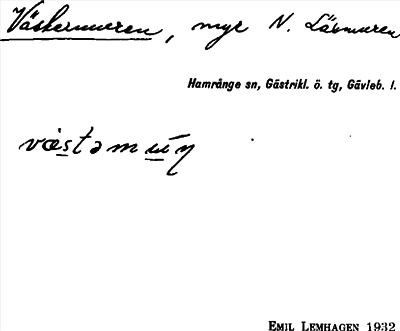 Västermuren, myr N. Lävmuren
Hamrånge sn, Gästrikl. ö. tg, Gävleb. l.
væstəmuṇ
EMIL LEMHAGEN 1932